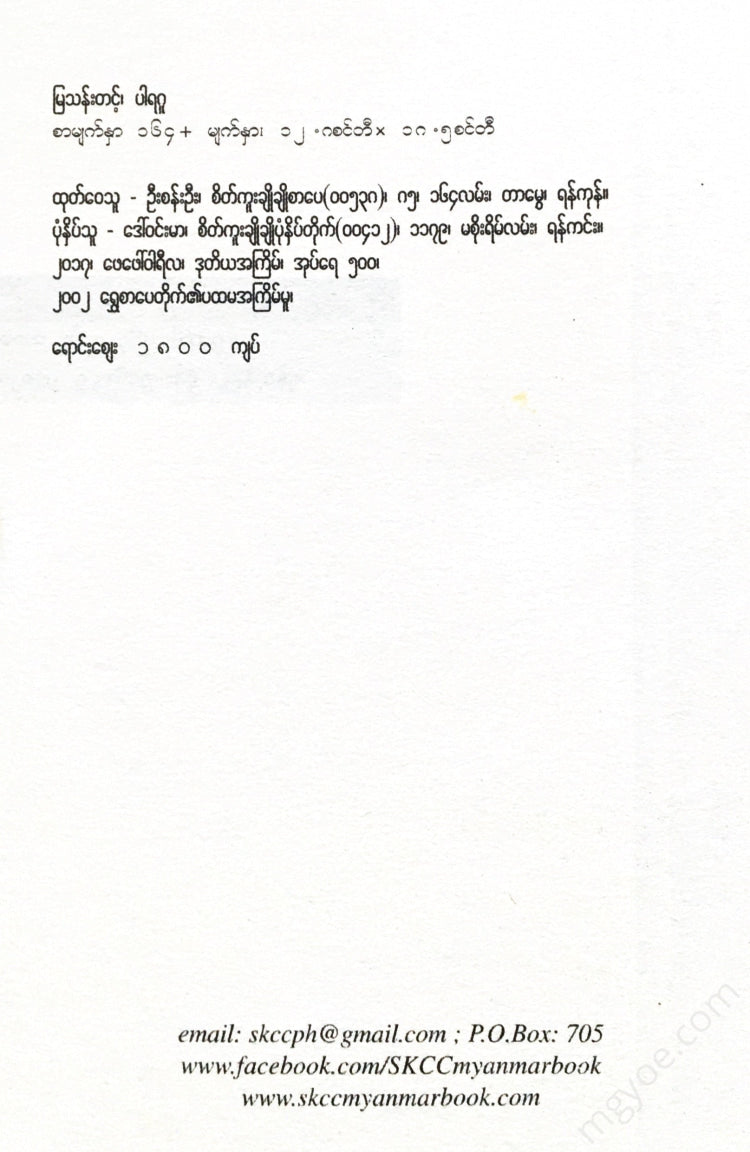 မြသန်းတင့်၊ ပါရဂူ
စာမျက်နှာ ၁၆၄ + မျက်နှာ၊ ၁၂ .၈စင်တီ × ၁၈ .၅စင်တီ
ထုတ်ဝေသူ - ဦးစန်းဦး၊ စိတ်ကူးချိုချိုစာပေ(၀၀၅၃၈)၊ ၈၅၊ ၁၆၄လမ်း၊ တာမွေ၊ ရန်ကုန်။
ပုံနှိပ်သူ - ဒေါ်ဝင်းမာ၊ စိတ်ကူးချိုချိုပုံနှိပ်တိုက်(၀၀၄၁၂)၊ ၁၁၇၉၊ မစိုးရိမ်လမ်း၊ ရန်ကင်း။
၂၀၁၇၊ ဖေဖော်ဝါရီလ၊ ဒုတိယအကြိမ်၊ အုပ်ရေ ၅၀၀၊
၂၀၀၂ ရွှေစာပေတိုက်၏ပထမအကြိမ်မူ၊
ရောင်းဈေး ၁ ၈ ၀ ၀ ကျပ်
email: skccph@gmail.com ; P.O.Box: 705
www.facebook.com/SKCCmyanmarbook
www.skccmyanmarbook.com
mgyoe.com